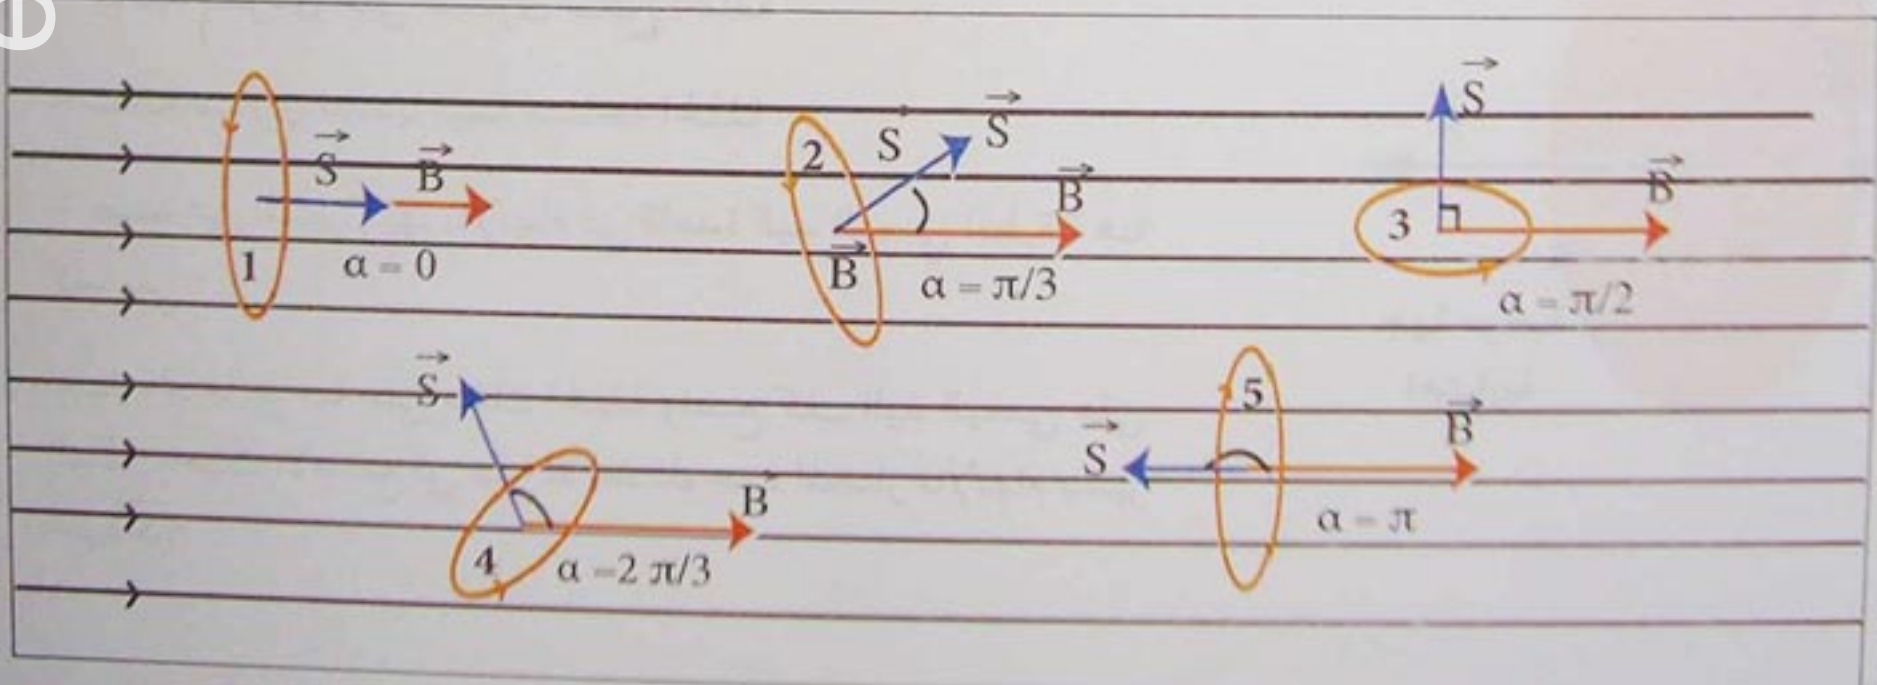 S⃗ B⃗
1
α = 0
2
S S⃗
B⃗
B⃗
α = π/3
S⃗
B⃗
3
α = π/2
S⃗
B
4
α =2 π/3
5
S⃗ B⃗
α = π